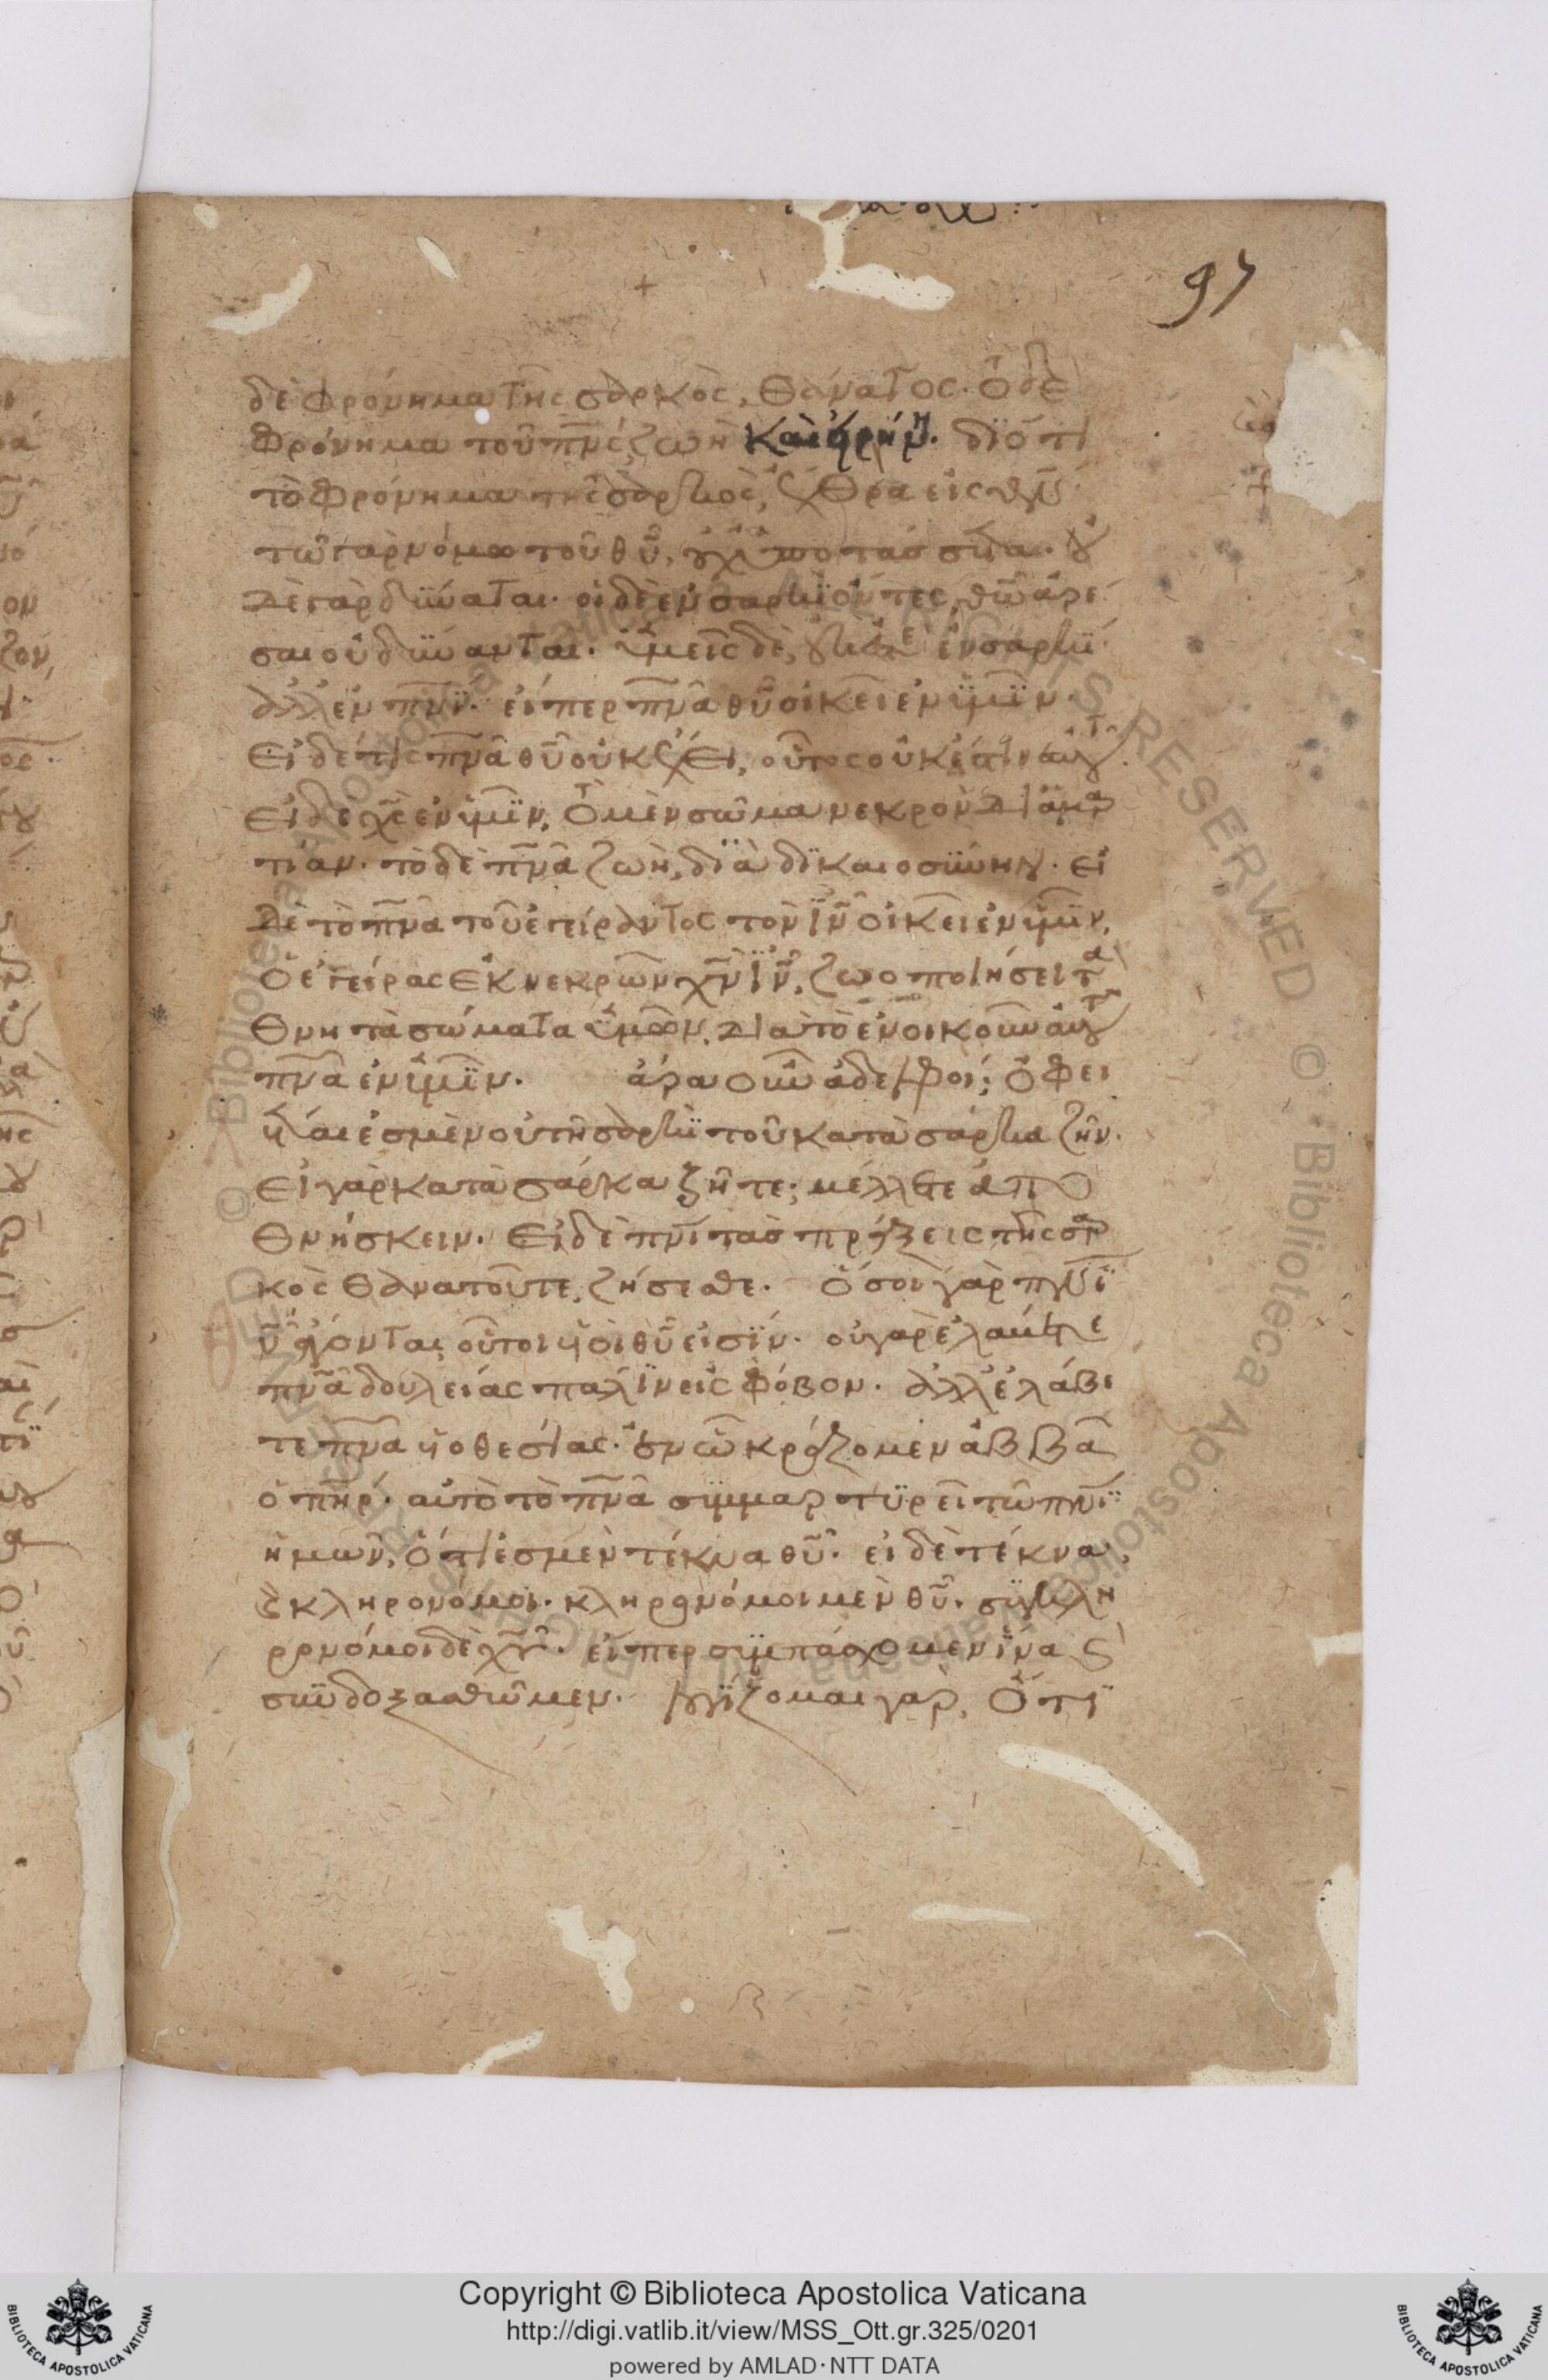 97
δὲ φρόνημα τῆς σαρκὸς, θάνατος· τὸ δὲ
φρόνημα τοῦ πν̅ς, ζωὴ καὶ εἰρήνη. διότι
τὸ φρόνημα τῆς σαρκὸς, ἔχθρα εἰς θν̅
τῶ γὰρ νόμω τοῦ θυ̅, οὐχ ὑποτάσσεται. οὐ
δὲ γὰρ δύναται. οἱ δὲ ἐν σαρκὶ ὄντες, θω̅ ἀρέ
σαι οὐ δύνανται. ὑμεῖς δὲ, οὐκ ἐστὲ ἐν σαρκὶ
ἀλλ' ἐν πνι̅. εἴπερ πνα̅ θυ̅ οἰκεῖ ἐν ὑμῖν.
Εἰ δέ τις πνα̅ θυ̅ οὐκ ἔχει, οὗτος οὐκ ἔστιν αὐτοῦ.
Εἰ δὲ χς̅ ἐν ὑμῖν, τὸ μὲν σῶμα νεκρὸν δι' ἁμαρ
τίαν. τὸ δὲ πνα̅ ζωὴ, διὰ δικαιοσύνην. εἰ
δὲ τὸ πνα̅ τοῦ ἐγείραντος τὸν ιν̅ οἰκεῖ ἐν ὑμῖν,
Ὁ ἐγείρας ἐκ νεκρῶν χν̅ ιν̅, ζωοποιήσει τὰ
θνητὰ σώματα ὑμῶν, διὰ τὸ ἐνοικοῦν αὐτοῦ
πνα̅ ἐν ὑμῖν. ἄρα οὖν ἀδελφοί; ὀφει
λέται ἐσμὲν οὐ τῆ σαρκὶ τοῦ κατὰ σάρκα ζῆν.
Εἰ γὰρ κατὰ σάρκα ζῆτε; μέλλετε ἀπο
θνήσκειν. Εἰ δὲ πνι̅ τὰς πράξεις τῆς σαρ
κὸς θανατοῦτε, ζήσεσθε. Ὅσοι γὰρ πνι̅
θυ̅ ἄγονται, οὗτοι υἱοὶ θυ̅ εἰσίν. οὐ γὰρ ἐλάβετε
πνα̅ δουλείας πάλιν εἰς φόβον. ἀλλ' ἐλάβε
τε πνα̅ υἱοθεσίας. ἐν ὧ κράζομεν ἀββᾶ
ὁ πηρ̅. αὐτὸ τὸ πνα̅ συμμαρτυρεῖ τῶ πνι̅
ἡμῶν, ὅτι ἐσμὲν τέκνα θυ̅. εἰ δὲ τέκνα,
ϗ κληρονόμοι. κληρονόμοι μὲν θυ̅. συγκλη
ρονόμοι δὲ χυ̅. εἴπερ συμπάσχομεν ἵνα ϗ
συνδοξασθῶμεν. λογίζομαι γὰρ, Ὅτι
© Biblioteca Apostolica Vaticana ALL RIGHTS RESERVED
Copyright © Biblioteca Apostolica Vaticana
http://digi.vatlib.it/view/MSS_Ott.gr.325/0201
powered by AMLAD·NTT DATA
BIBLIOTECA APOSTOLICA VATICANA
BIBLIOTECA APOSTOLICA VATICANA